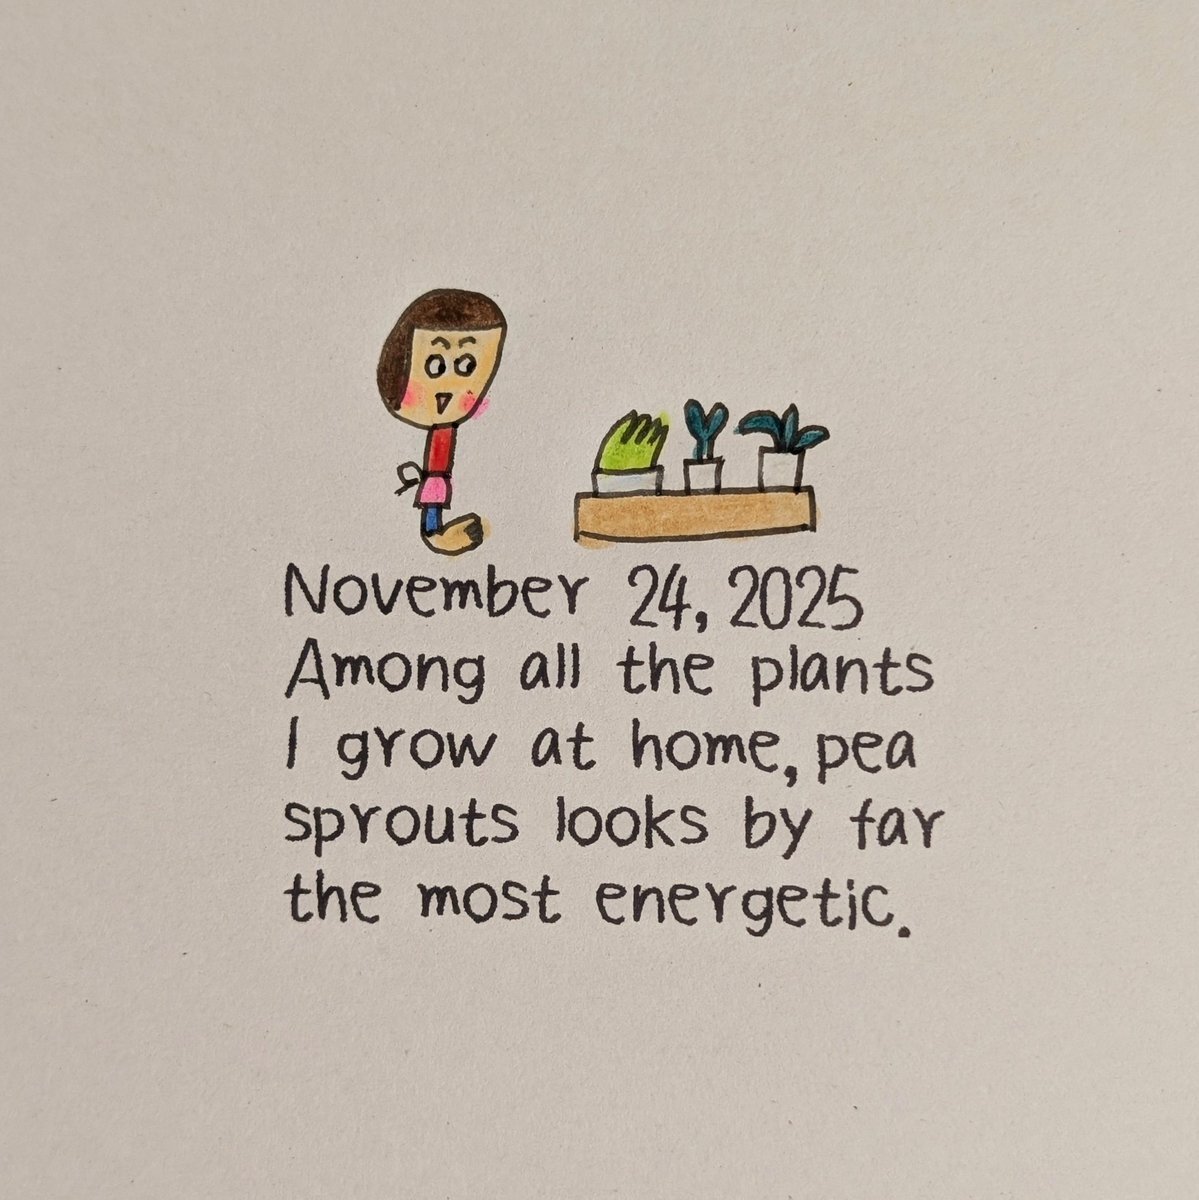 November 24, 2025
Among all the plants
I grow at home, pea
sprouts looks by far
the most energetic.